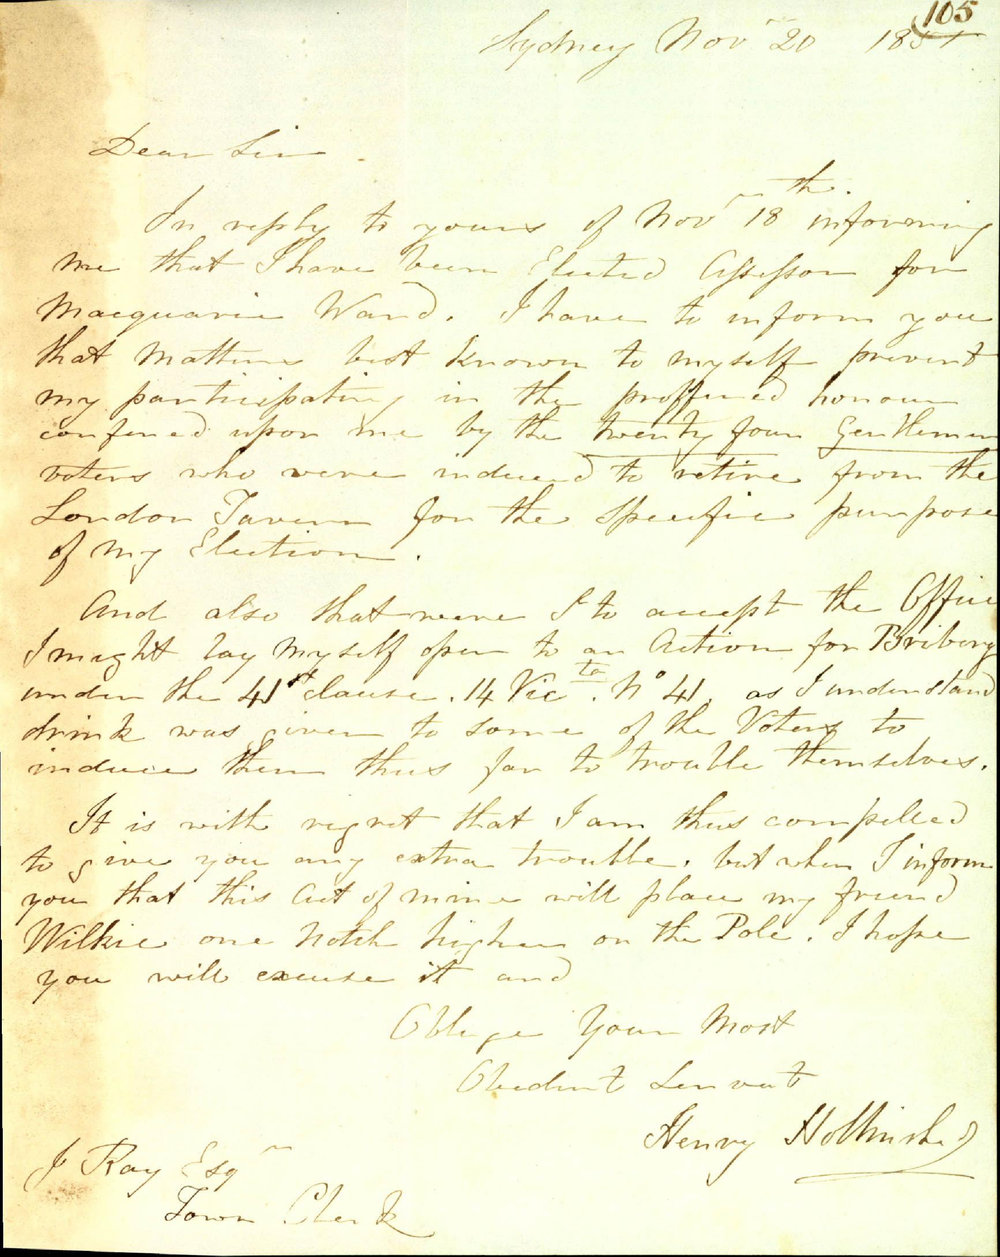 105
Sydney Novr 20 1851
Dear Sir.
In reply to yours of Novr 18th. informing
me that I have been Elected Assessor for
Macquarie Ward. I have to inform you
that Matters best known to myself prevent
my participating in the proffered honour
confered upon me by the twenty four Gentlemen
voters who were induced to retire from the
London Tavern for the specific purpose
of my Election.
And also that were I to accept the Office
I might lay myself open to an Action for Bribery
under the 41st clause. 14 Victa. No 41, as I understand
drink was given to some of the Voters to
induce them thus far to trouble themselves.
It is with regret that I am thus compelled
to give you any extra trouble. but when I inform
you that this Act of mine will place my friend
Wilkie one notch higher on the Pole. I hope
you will excuse it and
Oblige Your Most
Obedient Servant
Henry Hollinshed
J Ray Esqr
Town Clerk